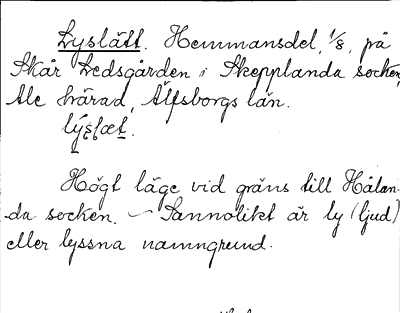 Lyslätt. Hemmansdel, 1/8, på
Skår Ledsgården i Skepplanda socken,
Ale härad, Älfsborgs län.
Högt läge vid gräns till Hålan-
da socken. — Sannolikt är ly (ljud)
eller lyssna namngrund.